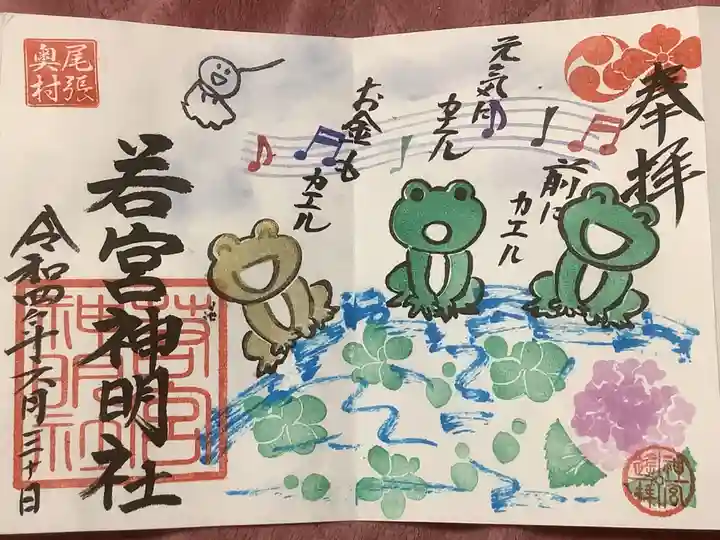 奉拝
前にカエル
元気にカエル
お金もカエル
尾張
奥村
若宮神明社
令和四年六月三十日
若宮
神明社